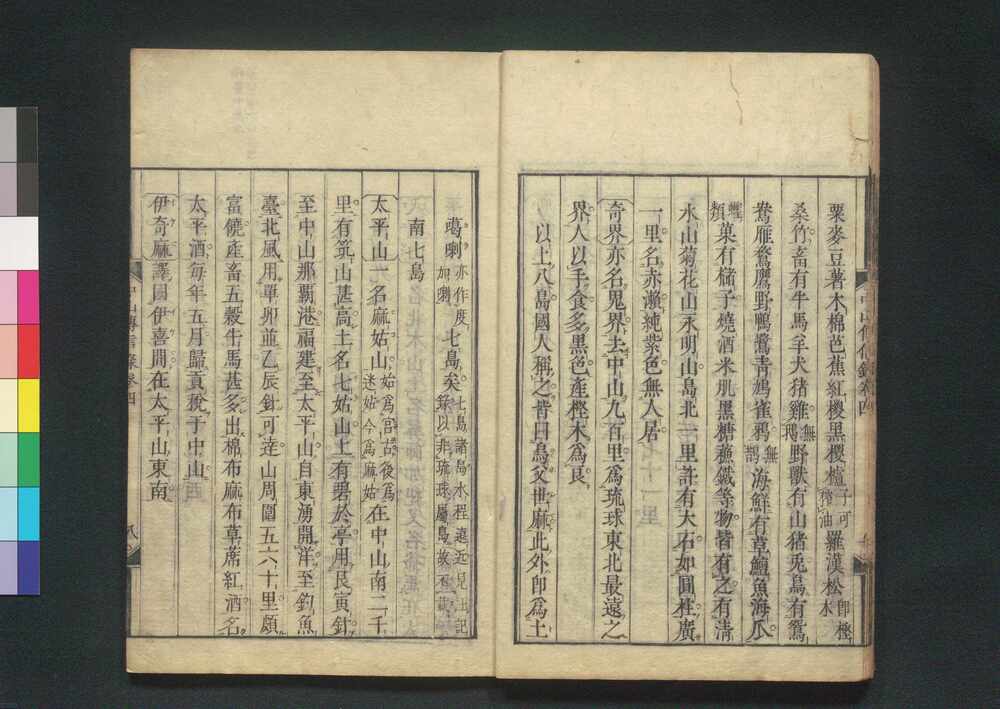 粟麥豆薯木棉芭蕉紅椶黑椶櫨子可搾油羅漢松卽樫木
桑竹畜有牛馬羊犬猪雞無鵞野獸有山猪兎鳥有鴛
鴦雁鶩鷹野鴨鷺青鳩雀鴉無鵲海鮮有草鱣魚海瓜
類菓有櫧子燒酒米肌黑糖蘓鐵等物皆有之有淸
水山菊花山永明山島北一里許有大石如圓柱廣
一里名赤瀨純紫色無人居
奇界亦名鬼界去中山九百里爲琉球東北最遠之
界人以手食多黑色產樫木爲良
以上八島國人稱之皆曰烏父世麻此外卽爲土
噶喇亦作度加喇七島矣七島諸島水程遠近見出記錄以非琉球屬島故不載
南七島
太平山一名麻姑山始爲宮古後爲迷姑今爲麻姑在中山南二千
里有筑山甚高土名七姑山上有碧於亭用艮寅針
至中山那覇港福建至太平山自東湧開洋至釣魚
臺北風用單卯並乙辰針可達山周圍五六十里頗
富饒產畜五穀牛馬甚多出棉布麻布草蓆紅酒名
太平酒每年五月歸貢稅于中山
伊奇麻譯曰伊喜間在太平山東南
中山傳信錄卷四
八
中山傳信錄卷四